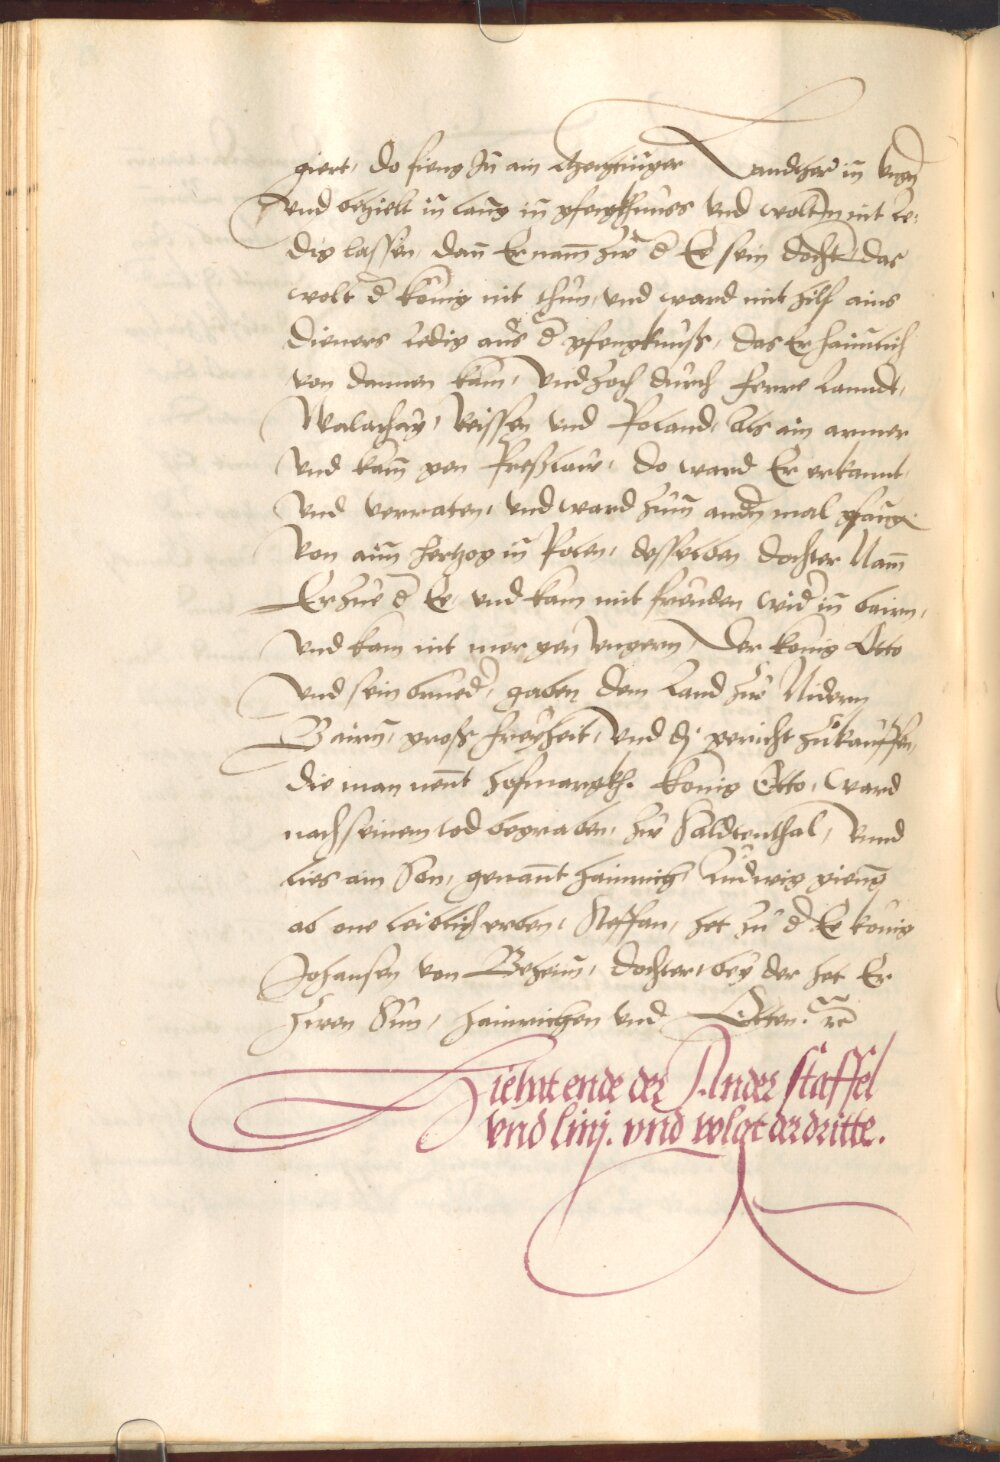 giert, do fieng In̄ ain Landtherr in̄ vngrn̄
vnd behielt in̄ lanng in̄ pfengkhnuss vnd wolt In nit le¬
dig lassen, dan̄ Er nam̄ zu d̄ Ee sein dochter, das
wolt d̄ könig nit thun, vnd ward mit hilf ains
dieners ledig aus d̄ pfengknuss, das Er haimlich
von dannen kam, vnd zoch durch ferre lanndt,
Walachay, Reissen vnd Poland, als ain armer
vnd kam̄ gen Presslaw, do ward Er erkannt,
vnd verraten, vnd ward zum̄ andrn̄ mal gfang.
von aim̄ hertzog in̄ Polen, desselben dochter Nam̄
Er zue d̄ Ee, vnd kam mit freuden wid̄ in̄ bairn,
vnd kam nit mer gen vngern, Der konig Otto
vnd sein brued̄, gaben dem land zu Nidern
Bairn̄, gross freyheit, vnd di gericht zukauffen,
die man nen̄t hofmargkh. konig Otto, ward
nach seinem tod begraben, zw Saldtenthal, vnnd
lies ain Son, genan̄t hainrich, Ludwig gieng
ab one leiblich erben, Steffan, het zu d̄ Ee konig
Johansen von Behem̄, dochter, bey der het Er
zwen Sun, Hainrichen vnd Otten. rc̄
Hie hat ende der Ander staffel
vnd linj. vnd volgt der dritte.